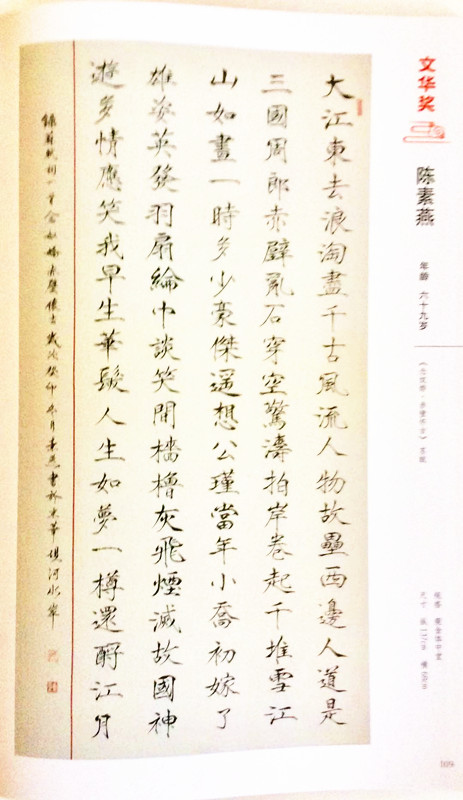 文华奖
陈素燕
年龄 六十九岁
《念奴娇·赤壁怀古》苏轼
大江東去浪淘盡千古風流人物故壘西邊人道是
三國周郎赤壁亂石穿空驚濤拍岸卷起千堆雪江
山如畫一時多少豪傑遥想公瑾當年小喬初嫁了
雄姿英發羽扇綸巾談笑間檣櫓灰飛煙滅故國神
遊多情應笑我早生華髮人生如夢一樽還酹江月
錄蘇軾詞一首念奴嬌赤壁懷古歲次癸卯冬月素燕書於京華河水岸
109